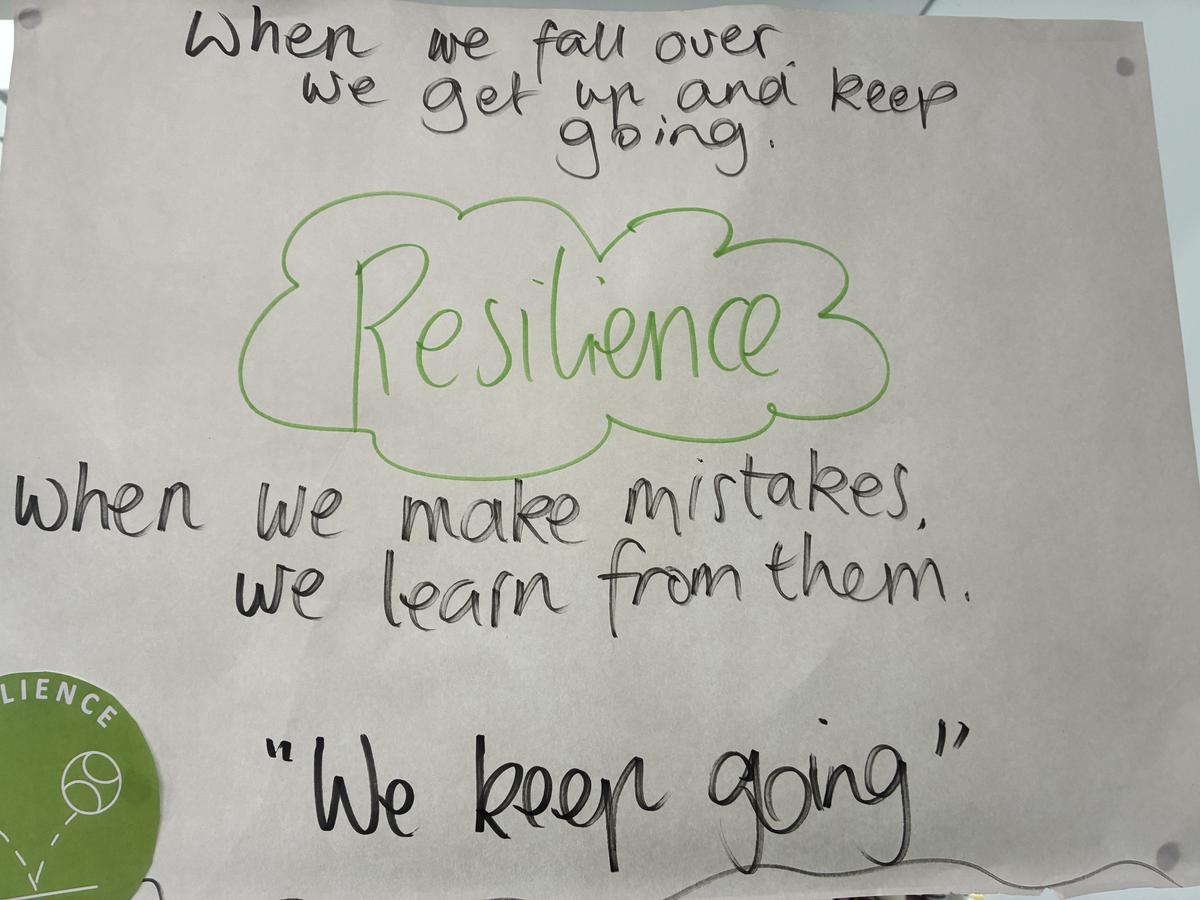 When we fall over
we get up and keep
going.
Resilience
when we make mistakes,
we learn from them.
LIENCE
"We keep going"